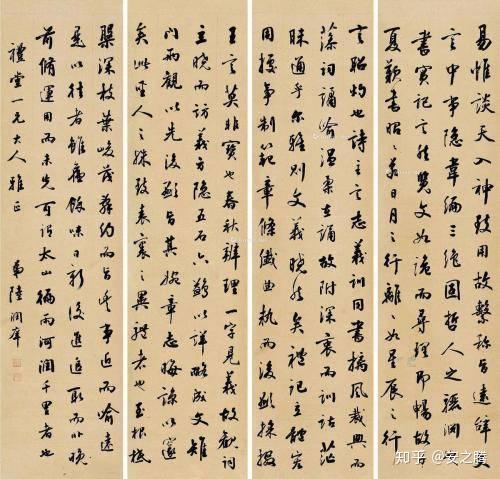 易惟談天入神致用故繫稱旨遠辭文
言中事隱韋編三絕固哲人之驪淵
書實記言然覽文如詭而尋理即暢故子
夏歎書昭昭若日月之行離離如星辰之行
言昭灼也詩主言志義訓同書摛風裁興而
藻詞譎喻溫柔在誦故附深衷而訓詁茫
昧通乎爾雅則文義曉然矣禮記立體
用據事制範章條纖曲執而後顯採掇
王言莫非寶也春秋辨理一字見義故觀詞
立曉而訪義方隱五石六鷁以詳略成文雉
門兩觀以先後顯旨其婉章志晦諒以邃
矣此聖人之殊致表裏之異體者也至根柢
槃深枝葉峻茂辭約而旨豐事近而喻遠
是以往者雖舊餘味日新後進追取而非晚
前脩運用而未先可謂太山徧雨而河潤千里者也
禮堂一兄大人雅正
弟陸潤庠
知乎 @安之腾